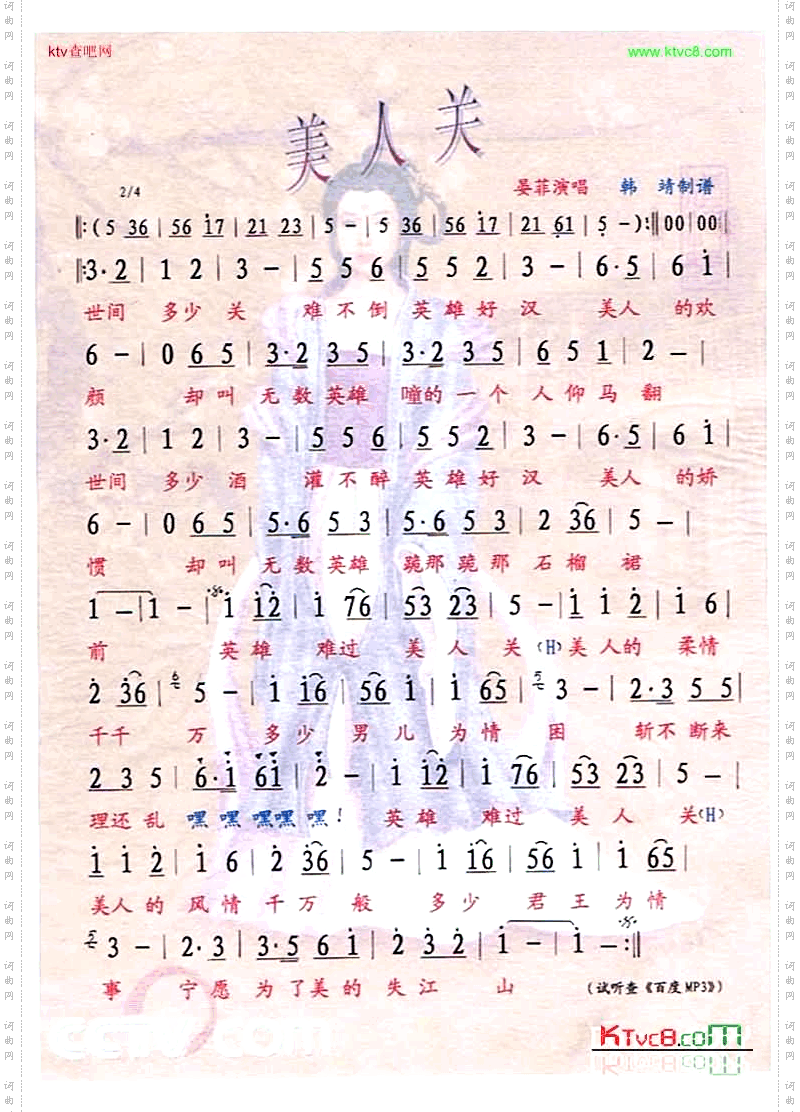 ktv查吧网 www.ktvc8.com
美人关
2/4 晏菲演唱 韩 靖制谱
‖:(5 36 | 56 i7 | 21 23 | 5 - | 5 36 | 56 i7 | 21 61 | 5 - ):‖ 00 | 00 |
‖:3·2 | 1 2 | 3 - | 5 5 6 | 5 5 2 | 3 - | 6·5 | 6 i |
世间 多少 关 难 不 倒 英 雄 好 汉 美人 的欢
6 - | 0 6 5 | 3·2 3 5 | 3·2 3 5 | 6 5 1 | 2 - |
颜 却叫 无数英雄 噇的一个 人仰马 翻
3·2 | 1 2 | 3 - | 5 5 6 | 5 5 2 | 3 - | 6·5 | 6 i |
世间 多少 酒 灌不醉 英雄好 汉 美人 的娇
6 - | 0 6 5 | 5·6 5 3 | 5·6 5 3 | 2 36 | 5 - |
惯 却叫 无数英雄 跪那跪那 石榴 裙
1 - | 1 - | i i2 | i 76 | 53 23 | 5 - | i i 2 | i 6 |
前 英雄 难过 美人 关(H)美人的 柔情
2 36 | 5 - | i i6 | 56 i | i 65 | 3 - | 2·3 5 5 |
千千 万 多少 男儿 为情 困 斩不断来
2 3 5 | 6·i 6i | 2 - | i i2 | i 76 | 53 23 | 5 - |
理还乱 嘿嘿嘿嘿嘿! 英雄 难过 美人 关(H)
i i 2 | i 6 | 2 36 | 5 - | i i6 | 56 i | i 65 |
美人的 风情 千万 般 多少 君王 为情
3 - | 2·3 | 3·5 6 i | 2 3 2 | i - | i - :‖
事 宁愿 为了美的 失江 山 (试听查《百度MP3》)
KTvc8.com
CCTV.com
词曲网